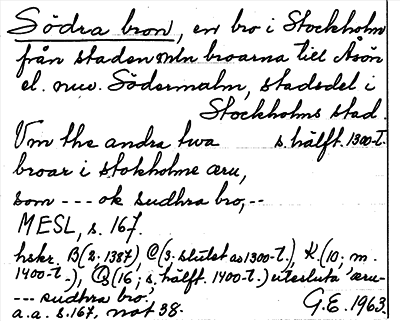 Södra bron, en bro i Stockholm
från staden mln broarna till Åsön
el. nuv. Södermalm, stadsdel i
Stockholms stad.
Vm the andra twa s. hälft. 1300-t.
broar i stokholme æru,
som --- ok sudhra bro,--
MESL, s. 167.
hskr. B(2. 1387), C(3. slutet av 1300-t.), K.(10; m.
1400-t.), (16; s. hälft. 1400-t.) utesluta æru-
--- sudhra bro,
a.a. s.167, not 38. G.E. 1963.